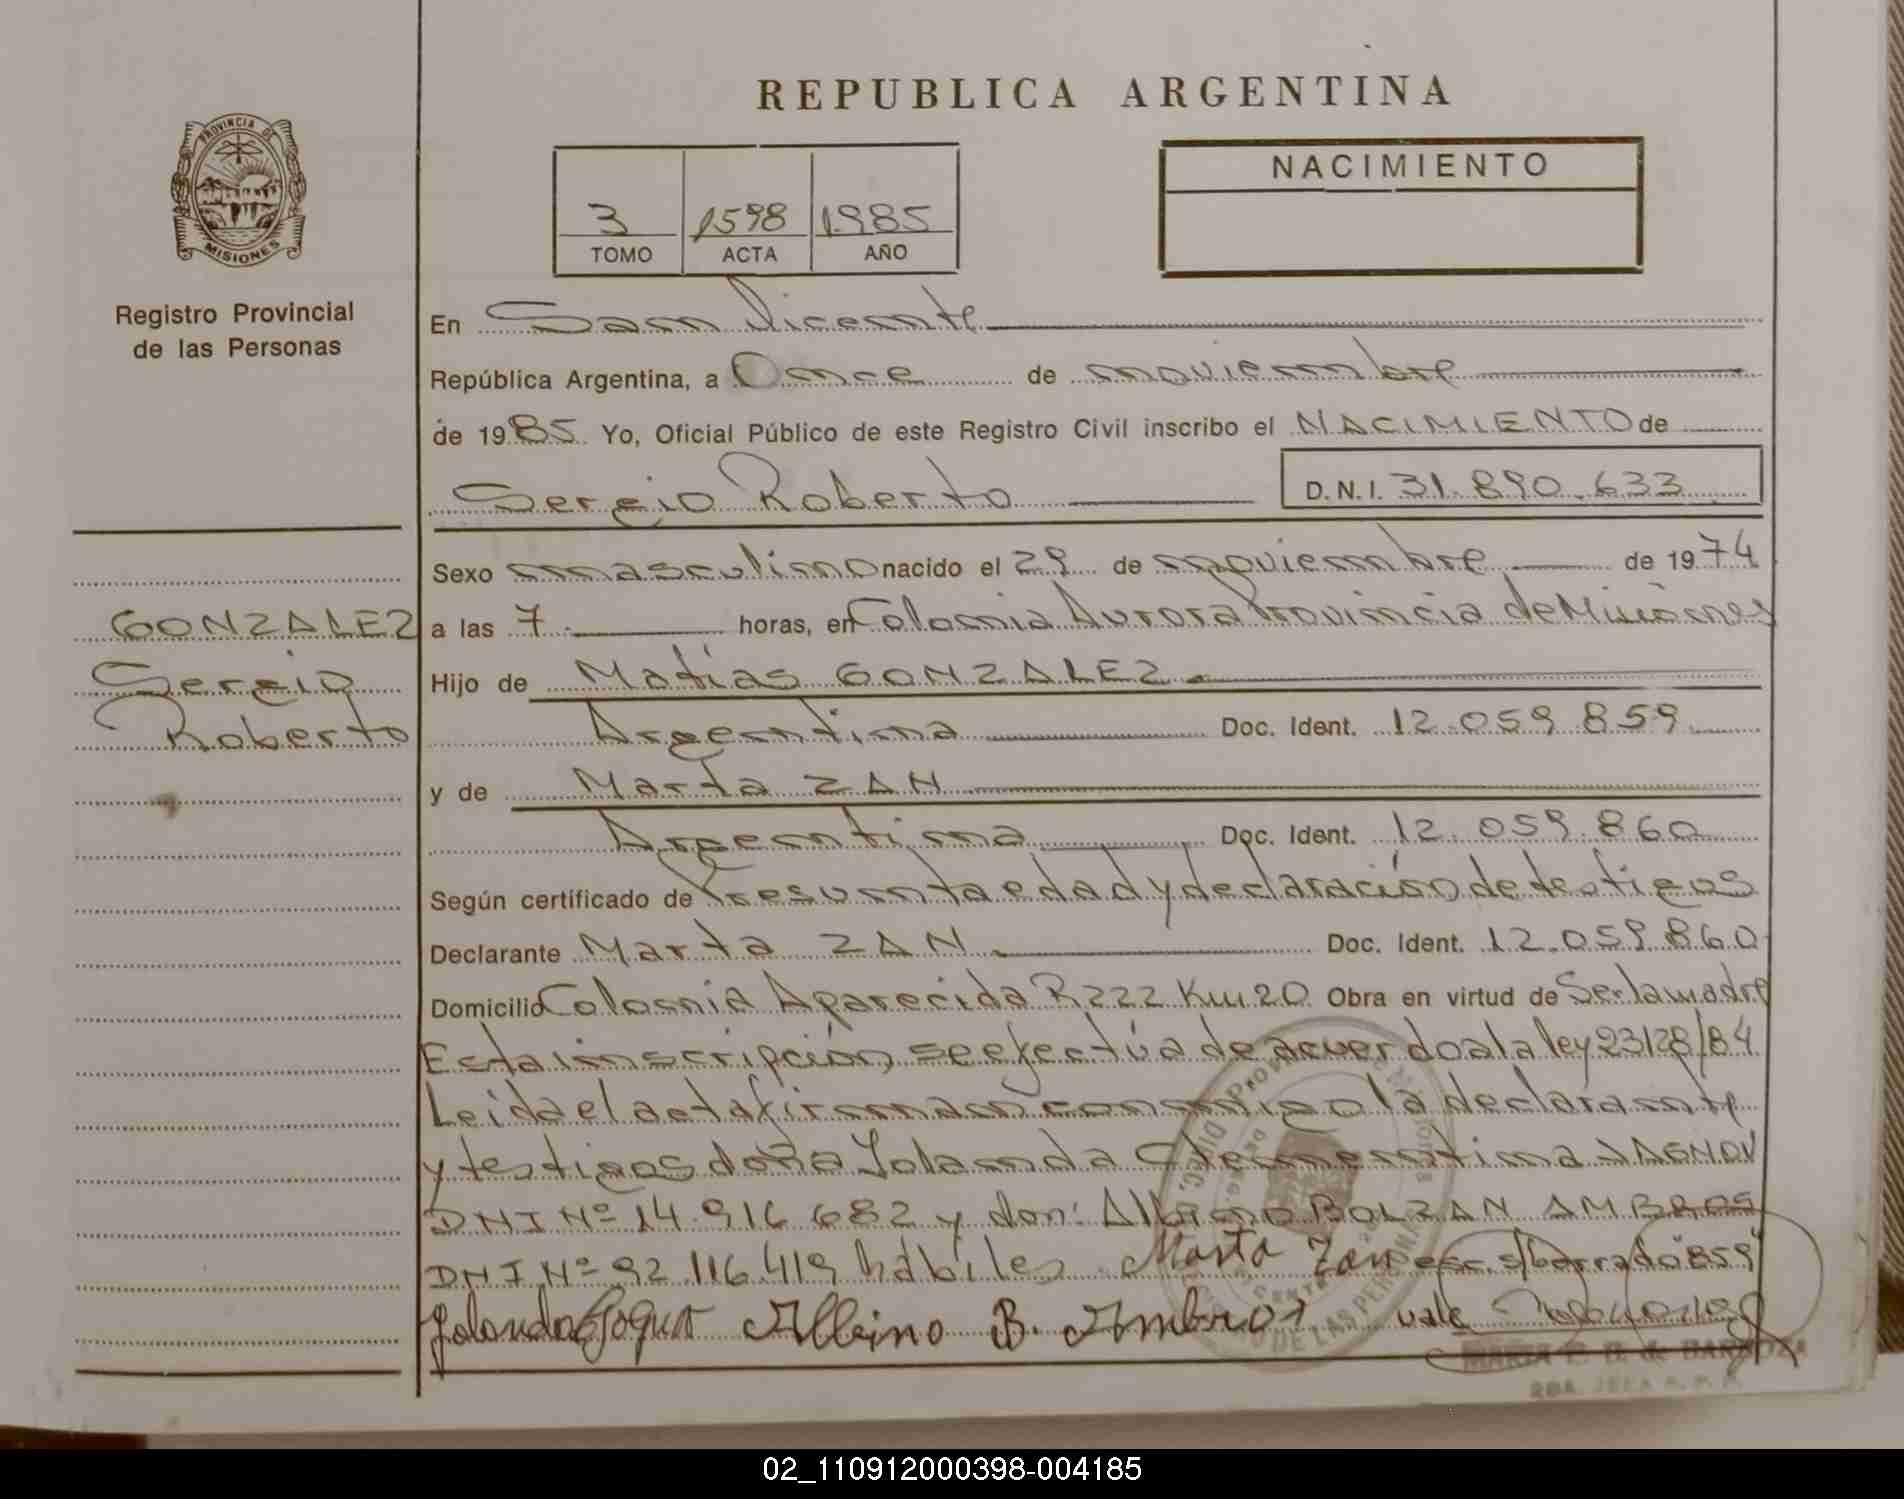 REPUBLICA ARGENTINA
PROVINCIA DE
MISIONES
Registro Provincial
de las Personas
3 1598 1985
TOMO ACTA AÑO
NACIMIENTO
En San Vicente
República Argentina, a Once de noviembre
de 1985 Yo, Oficial Público de este Registro Civil inscribo el NACIMIENTO de
Sergio Roberto D.N.I. 31.890.633
Sexo masculino nacido el 29 de noviembre de 1974
GONZALEZ
Sergio
Roberto
a las 7 horas, en Colonia Aurora Provincia de Misiones
Hijo de Matías GONZALEZ
Argentina Doc. Ident. 12.059.859
y de Marta ZAN
Argentina Doc. Ident. 12.059.860
Según certificado de Presunta edad y declaración de testigos
Declarante Marta ZAN Doc. Ident. 12.059.860
Domicilio Colonia Aparecida R 222 Km 20 Obra en virtud de Ser la madre
Esta inscripción se efectúa de acuerdo a la ley 23128/84
Leida el acta firman conmigo la declarante
y testigos doña Yolanda Clementina
DNI Nº 14.916.682 y don: Albino BOLZAN AMBROS
DNI Nº 92.116.419 hábiles Marta Zan esc. s/borrado "859"
Albino B. Ambros vale
MARIA E. B. de BARBOZA